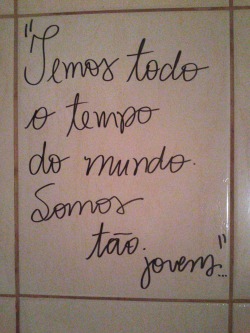 "Temos todo
o tempo
do mundo.
Somos
tão.
jovens..."